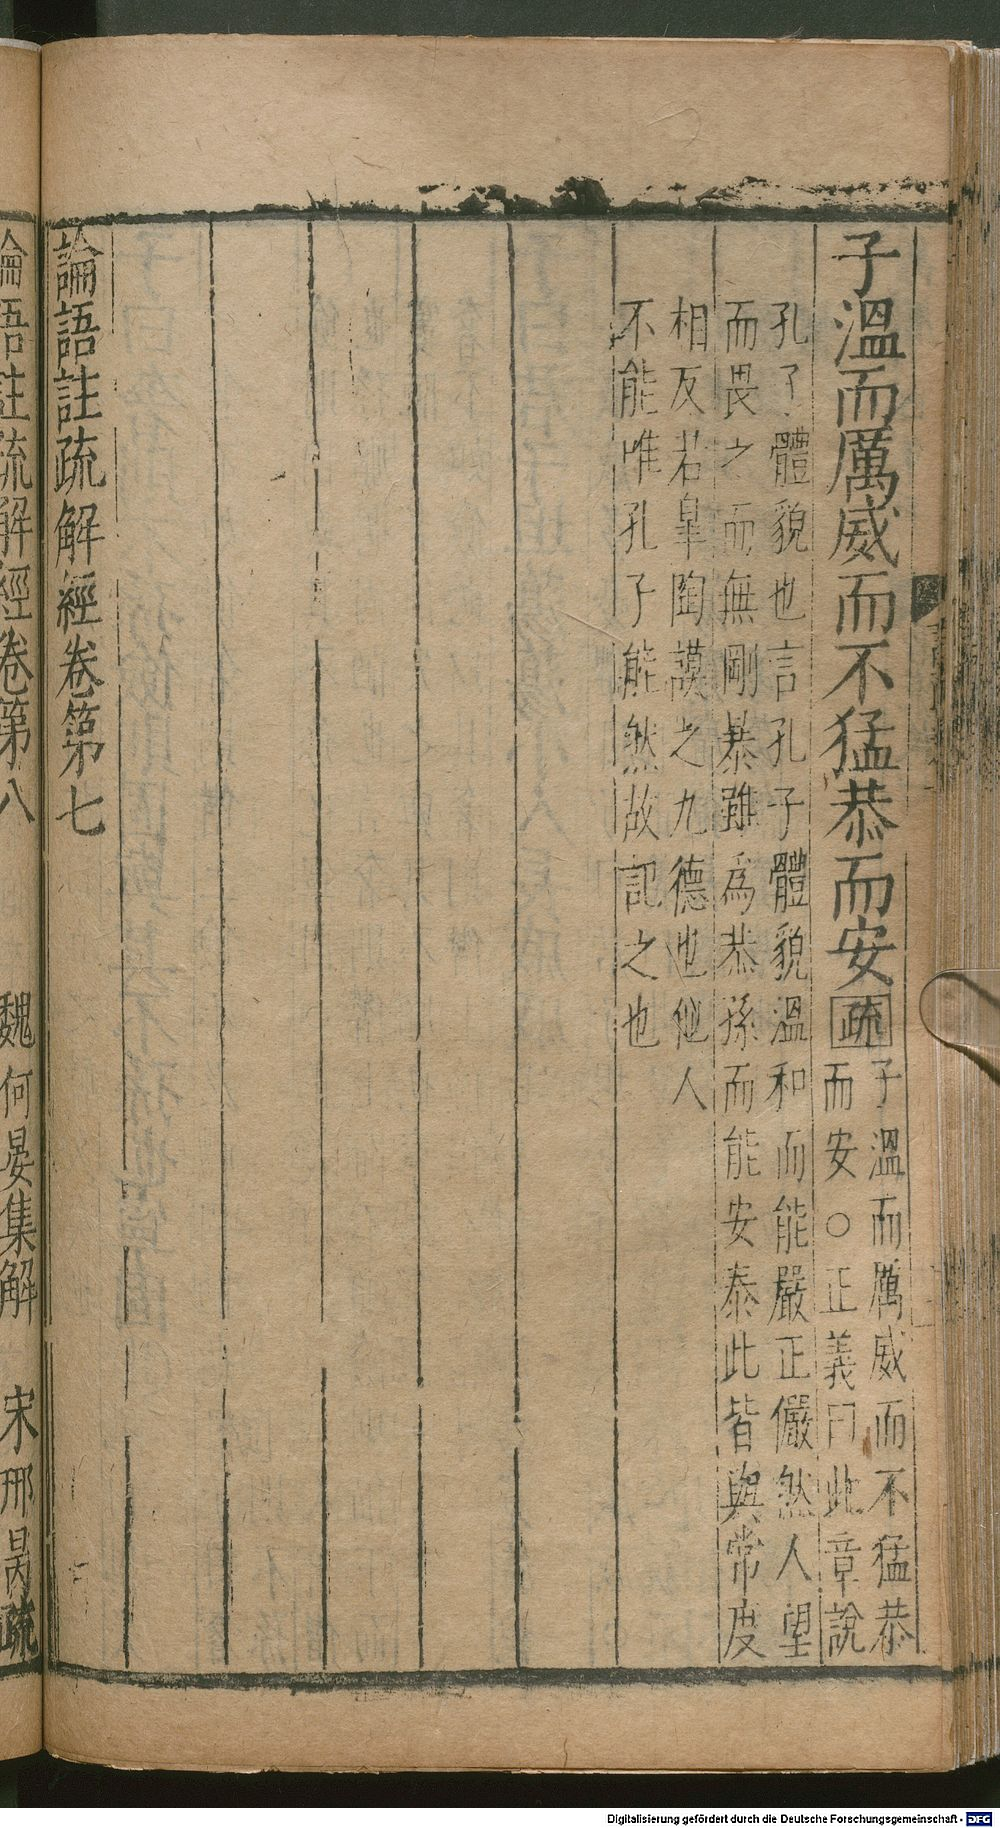 子溫而厲威而不猛恭而安疏
子溫而厲威而不猛恭
而安○正義曰此章說
孔子體貌也言孔子體貌溫和而能嚴正儼然人望
而畏之而無剛暴雖為恭孫而能安泰此皆與常度
相反若皐陶謨之九德也他人
不能唯孔子能然故記之也
論語註疏解經卷第七
論語註疏解經卷第八
魏何晏集解 宋邢昺疏
Digitalisierung gefördert durch die Deutsche Forschungsgemeinschaft - DFG